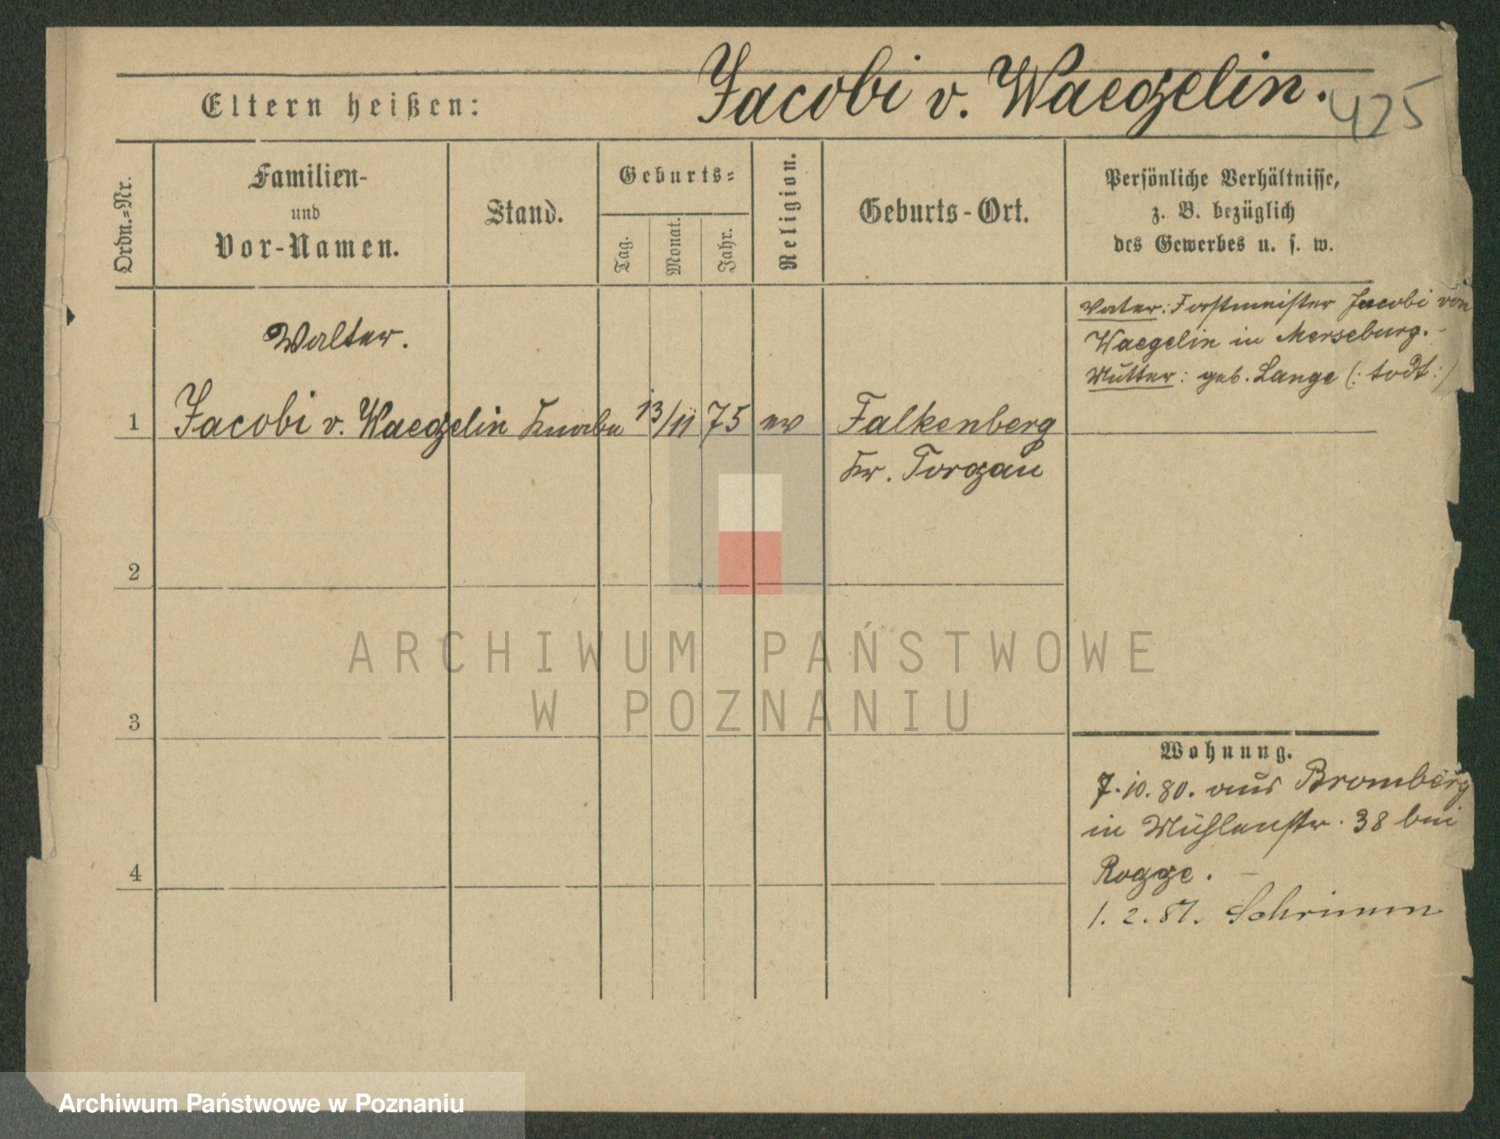 Eltern heißen:
Jacobi v. Waegelin.
425
Ordn.=Nr.
Familien-
und
Vor-Namen.
Stand.
Geburts=
Tag.
Monat.
Jahr.
Religion.
Geburts-Ort.
Persönliche Verhältnisse,
z. B. bezüglich
des Gewerbes u. s. w.
Walter.
1 Jacobi v. Waegelin Knabe 13/11 75 ev Falkenberg
Kr. Torgau
Vater: Forstmeister Jacobi von
Waegelin in Merseburg.-
Mutter: geb. Lange (: todt :)
2
3
4
Wohnung.
7.10.80. aus Bromberg
in Mühlenstr. 38 bei
Rogge. -
1. 2. 81. Schrimm
ARCHIWUM PAŃSTWOWE
W POZNANIU
Archiwum Państwowe w Poznaniu